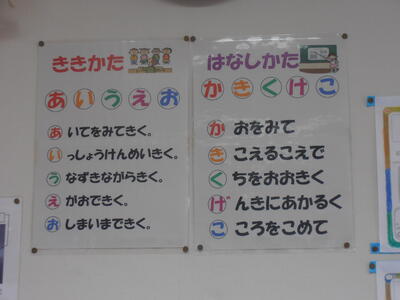 ききかた
あいうえお
あいてをみてきく。
いっしょうけんめいきく。
うなずきながらきく。
えがおできく。
おしまいまできく。
はなしかた
かきくけこ
かおをみて
きこえるこえで
くちをおおきく
げんきにあかるく
こころをこめて